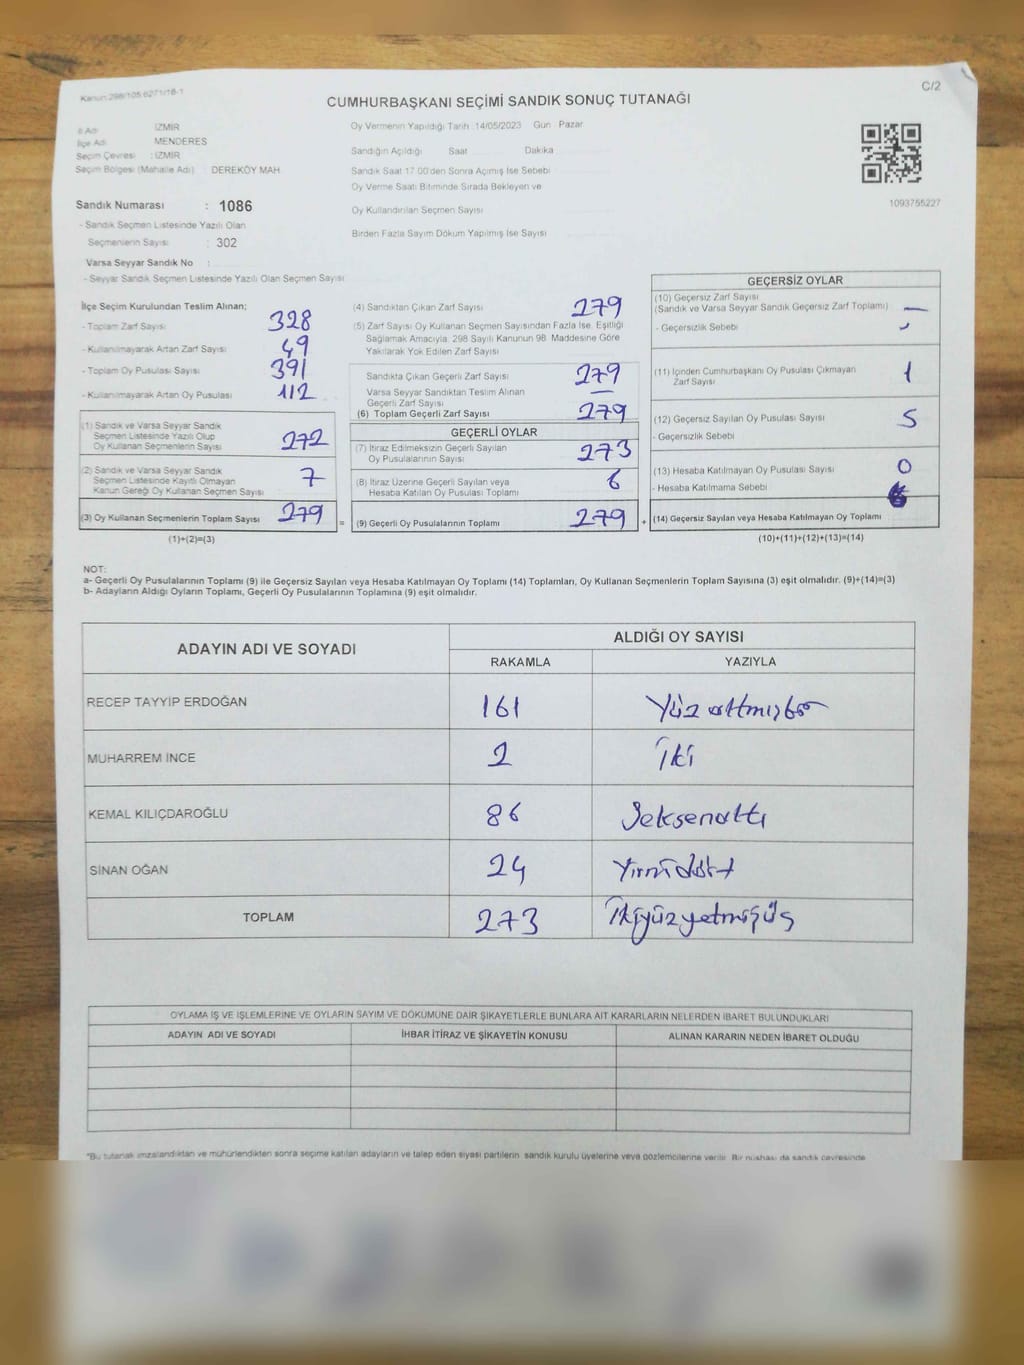 Kanun:298/105 6271/18-1
C/2
CUMHURBAŞKANI SEÇİMİ SANDIK SONUÇ TUTANAĞI
İl Adı : İZMİR
İlçe Adı : MENDERES
Seçim Çevresi : İZMİR
Seçim Bölgesi (Mahalle Adı) : DEREKÖY MAH
Sandık Numarası : 1086
- Sandık Seçmen Listesinde Yazılı Olan
Seçmenlerin Sayısı : 302
Varsa Seyyar Sandık No :
- Seyyar Sandık Seçmen Listesinde Yazılı Olan Seçmen Sayısı
Oy Vermenin Yapıldığı Tarih :14/05/2023 Gün : Pazar
Sandığın Açıldığı Saat Dakika
Sandık Saat 17.00'den Sonra Açılmış İse Sebebi
Oy Verme Saati Bitiminde Sırada Bekleyen ve
Oy Kullandırılan Seçmen Sayısı
Birden Fazla Sayım Döküm Yapılmış İse Sayısı
1093755227
İlçe Seçim Kurulundan Teslim Alınan;
- Toplam Zarf Sayısı 328
- Kullanılmayarak Artan Zarf Sayısı 49
- Toplam Oy Pusulası Sayısı 391
- Kullanılmayarak Artan Oy Pusulası 112
(1) Sandık ve Varsa Seyyar Sandık
Seçmen Listesinde Yazılı Olup
Oy Kullanan Seçmenlerin Sayısı 272
(2) Sandık ve Varsa Seyyar Sandık
Seçmen Listesinde Kayıtlı Olmayan
Kanun Gereği Oy Kullanan Seçmen Sayısı 7
(3) Oy Kullanan Seçmenlerin Toplam Sayısı 279 =
(1)+(2)=(3)
(4) Sandıktan Çıkan Zarf Sayısı 279
(5) Zarf Sayısı Oy Kullanan Seçmen Sayısından Fazla İse, Eşitliği
Sağlamak Amacıyla, 298 Sayılı Kanunun 98. Maddesine Göre
Yakılarak Yok Edilen Zarf Sayısı
Sandıkta Çıkan Geçerli Zarf Sayısı 279
Varsa Seyyar Sandıktan Teslim Alınan
Geçerli Zarf Sayısı —
(6) Toplam Geçerli Zarf Sayısı 279
GEÇERLİ OYLAR
(7) İtiraz Edilmeksizin Geçerli Sayılan
Oy Pusulalarının Sayısı 273
(8) İtiraz Üzerine Geçerli Sayılan veya
Hesaba Katılan Oy Pusulası Toplamı 6
(9) Geçerli Oy Pusulalarının Toplamı 279 +
GEÇERSİZ OYLAR
(10) Geçersiz Zarf Sayısı
(Sandık ve Varsa Seyyar Sandık Geçersiz Zarf Toplamı) —
- Geçersizlik Sebebi
(11) İçinden Cumhurbaşkanı Oy Pusulası Çıkmayan
Zarf Sayısı 1
(12) Geçersiz Sayılan Oy Pusulası Sayısı 5
- Geçersizlik Sebebi
(13) Hesaba Katılmayan Oy Pusulası Sayısı 0
- Hesaba Katılmama Sebebi
(14) Geçersiz Sayılan veya Hesaba Katılmayan Oy Toplamı
(10)+(11)+(12)+(13)=(14)
NOT:
a- Geçerli Oy Pusulalarının Toplamı (9) ile Geçersiz Sayılan veya Hesaba Katılmayan Oy Toplamı (14) Toplamları, Oy Kullanan Seçmenlerin Toplam Sayısına (3) eşit olmalıdır. (9)+(14)=(3)
b- Adayların Aldığı Oyların Toplamı, Geçerli Oy Pusulalarının Toplamına (9) eşit olmalıdır.
ADAYIN ADI VE SOYADI
ALDIĞI OY SAYISI
RAKAMLA YAZIYLA
RECEP TAYYİP ERDOĞAN 161 Yüz altmışbir
MUHARREM İNCE 2 İki
KEMAL KILIÇDAROĞLU 86 Seksenaltı
SİNAN OĞAN 24 Yirmidört
TOPLAM 273 İkiyüzyetmişüç
OYLAMA İŞ VE İŞLEMLERİNE VE OYLARIN SAYIM VE DÖKÜMÜNE DAİR ŞİKAYETLERLE BUNLARA AİT KARARLARIN NELERDEN İBARET BULUNDUKLARI
ADAYIN ADI VE SOYADI İHBAR İTİRAZ VE ŞİKAYETİN KONUSU ALINAN KARARIN NEDEN İBARET OLDUĞU
"Bu tutanak imzalandıktan ve mühürlendikten sonra seçime katılan adayların ve talep eden siyasi partilerin sandık kurulu üyelerine veya gözlemcilerine verilir. Bir nüshası da sandık çevresinde